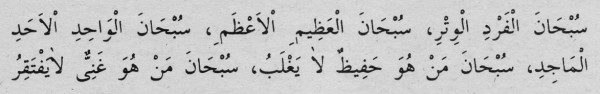 سُبْحَانَ الْفَرْدِ الْوِتْرِ، سُبْحَانَ الْعَظِيمِ الْاَعْظَمِ، سُبْحَانَ الْوَاحِدِ الْاَحَدِ
الْمَاجِدِ، سُبْحَانَ مَنْ هُوَ حَفِيظٌ لاَ يَغْلَبُ، سُبْحَانَ مَنْ هُوَ غَنِىٌّ لاَيَفْتَقِرُ